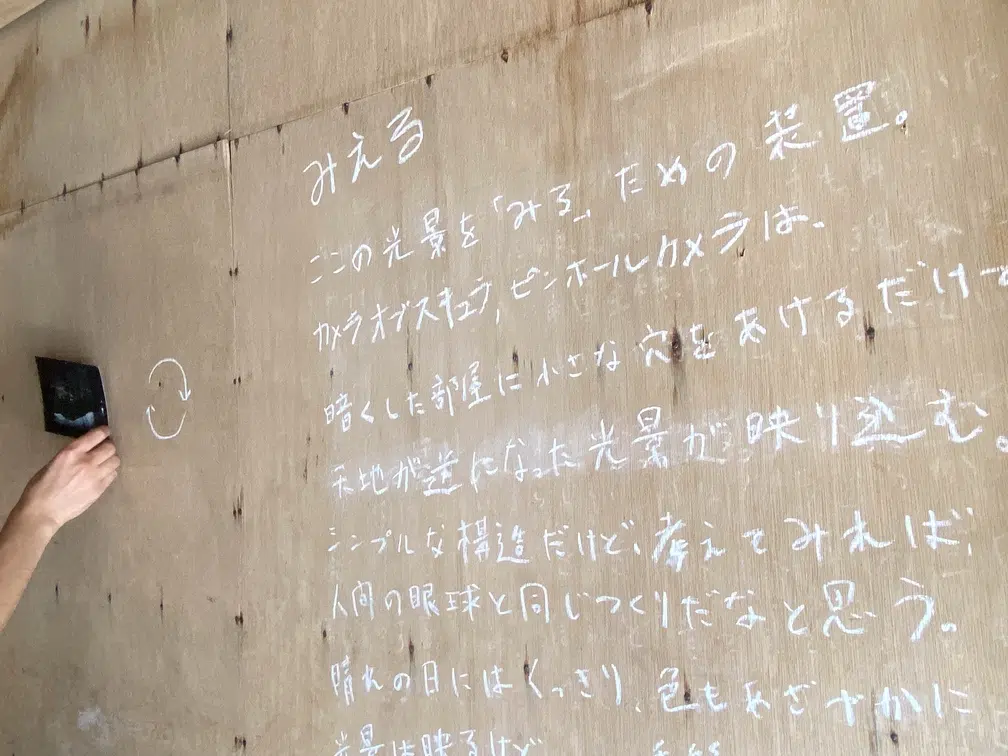 みえる
ここの光景を「みる」ための装置。
カメラオブスキュラ、ピンホールカメラは、
暗くした部屋に小さな穴をあけるだけで
天地が逆になった光景が映り込む。
シンプルな構造だけど、考えてみれば、
人間の眼球と同じつくりだなと思う。
晴れの日にはくっきり、色もあざやかに
光景は映るけど